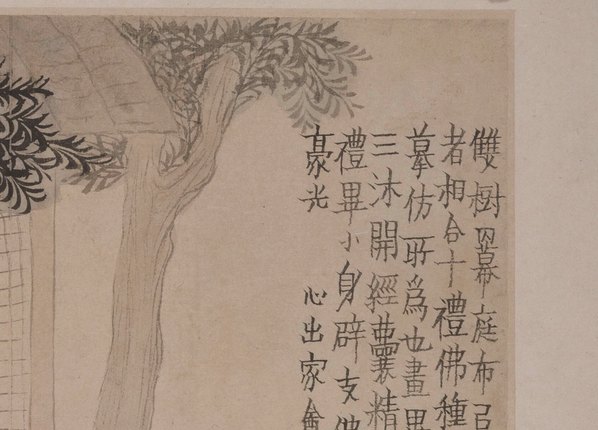 雙樹幕庭布
者相合十禮佛種
摹仿所爲也畫
三沐開經囊精
禮畢小身辟支佛
豪光
心出家盦